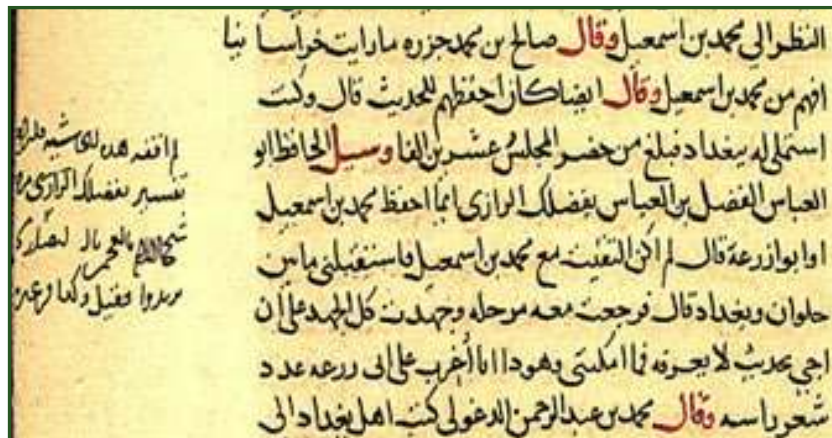 النظر الى محمد بن اسمعيل وقال صالح بن محمد جزره ما رايت خراسانيا
افهم من محمد بن اسمعيل وقال ايضا كان احفظهم للحديث قال وكنت
استملى له ببغداد فبلغ من حضر المجلس عشرين الفا وسيل الحافظ ابو
العباس الفضل بن العباس بفضلك الرازى ايما احفظ محمد بن اسمعيل
او ابو زرعة قال لم اكن التقيت مع محمد بن اسمعيل فاستقبلنى ما بين
حلوان وبغداد قال فرجعت معه مرحله وجهدت كل الجهد على ان
اجى بحديث لا يعرفه فما امكننى وهو ذا انا أغرب على ابى زرعه عدد
شعر راسه وقال محمد بن عبد الرحمن الدغولى كتب اهل بغداد الى
لم افقه هذه
تفسير بفضلك الرازى